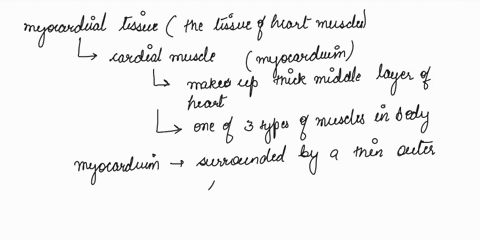 myocardial tissue ( the tissue of heart muscles)
↳ cardial muscle (myocarduim)
↳ makes up thick middle layer of
heart
↳ one of 3 types of muscles in body
myocarduim → surrounded by a thin outer